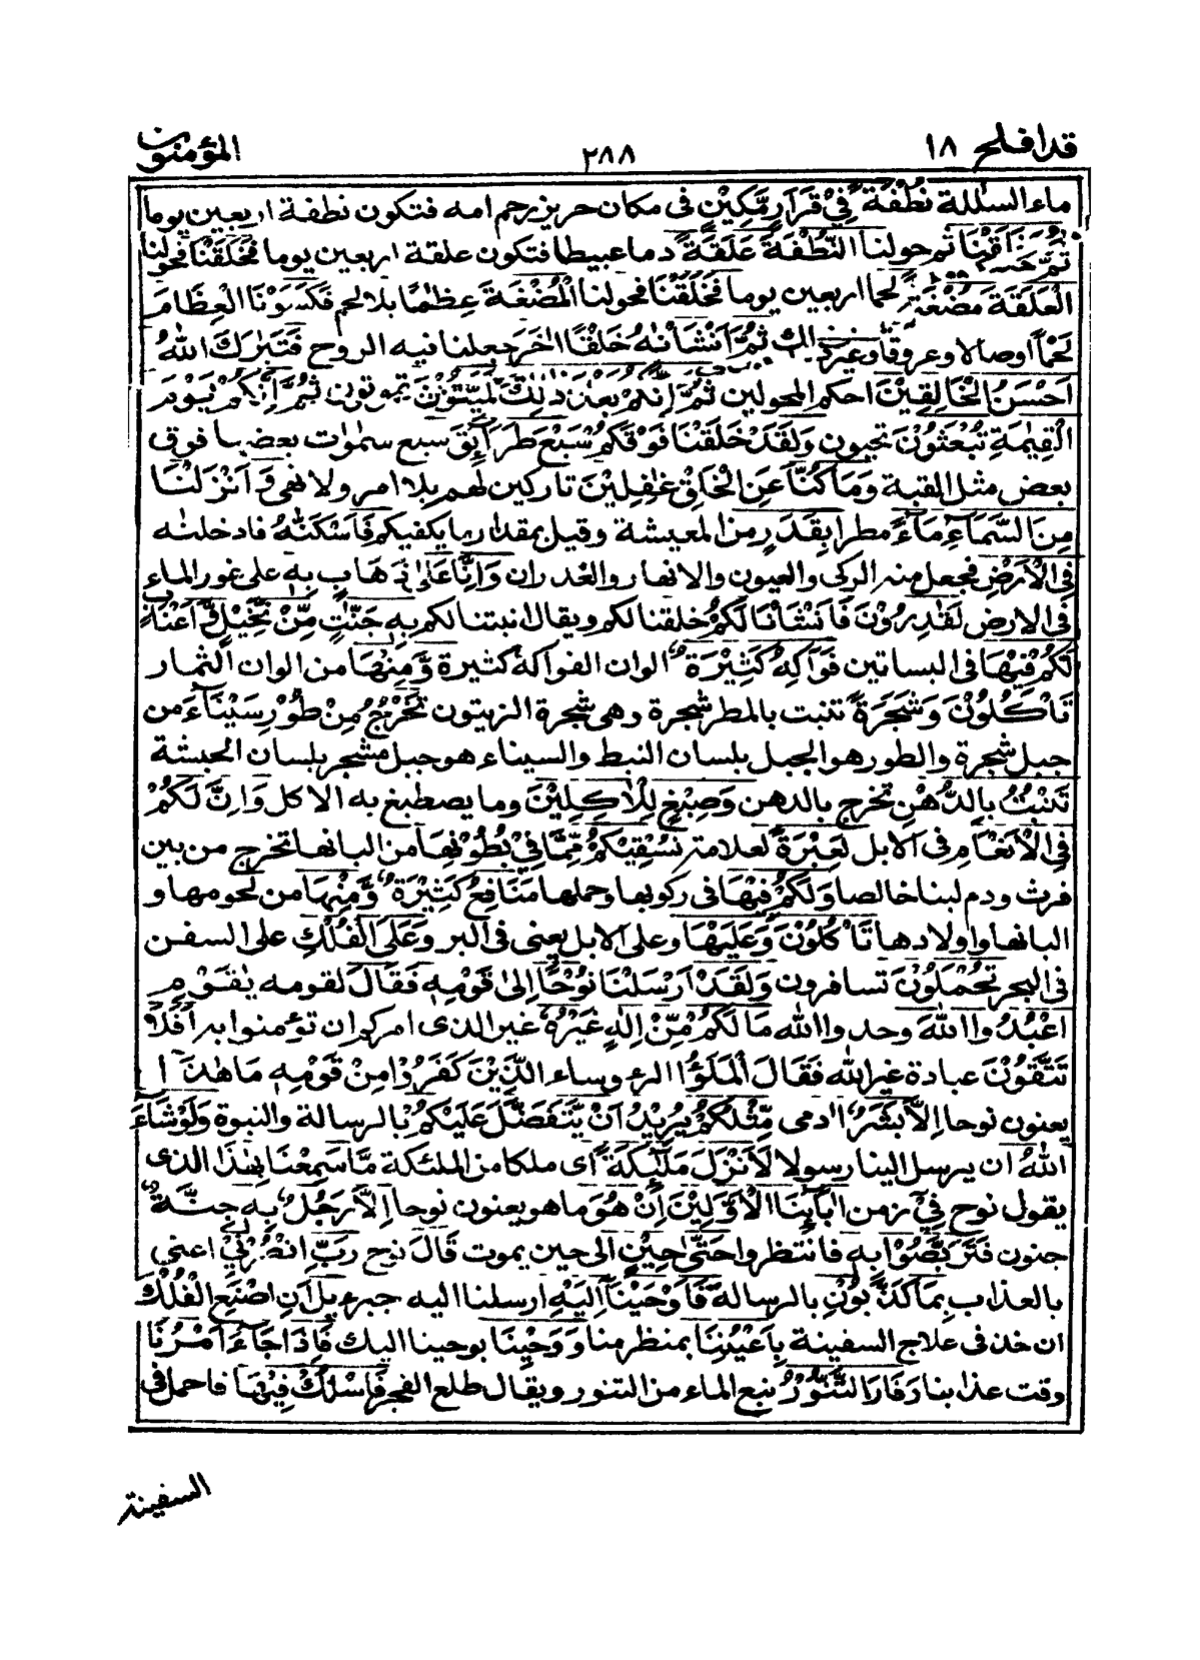 قد افلح ١٨
٢٨٨
المؤمنون
ماء السللة نُطْفَةً فِيْ قَرَارٍ مَّكِيْنٍ فى مكان حريز رحم امه فتكون نطفة اربعين يوما
ثُمَّ خَلَقْنَا ثم حولنا النُّطْفَةَ عَلَقَةً دما عبيطا فتكون علقة اربعين يوما فَخَلَقْنَا فحولنا
الْعَلَقَةَ مُضْغَةً لحما اربعين يوما فَخَلَقْنَا فحولنا الْمُضْغَةَ عِظٰمًا بلا لحم فَكَسَوْنَا الْعِظَامَ
لَحْمًا اوصالا وعروقا وغير ذلك ثُمَّ اَنْشَاْنٰهُ خَلْقًا اٰخَرَ جعلنا فيه الروح فَتَبٰرَكَ اللّٰهُ
اَحْسَنُ الْخَالِقِيْنَ احكم المحولين ثُمَّ اِنَّكُمْ بَعْدَ ذٰلِكَ لَمَيِّتُوْنَ تموتون ثُمَّ اِنَّكُمْ يَوْمَ
الْقِيٰمَةِ تُبْعَثُوْنَ تحيون وَلَقَدْ خَلَقْنَا فَوْقَكُمْ سَبْعَ طَرَآئِقَ سبع سمٰوٰت بعضها فوق
بعض مثل القبة وَمَا كُنَّا عَنِ الْخَلْقِ غٰفِلِيْنَ تاركين لهم بلا امر ولا نهى وَ اَنْزَلْنَا
مِنَ السَّمَآءِ مَآءً مطرا بِقَدَرٍ من المعيشة وقيل بمقدار ما يكفيكم فَاَسْكَنّٰهُ فادخلنٰه
فِى الْاَرْضِ فجعل منه الركى والعيون والانهار والغدران وَاِنَّا عَلٰى ذَهَابٍ بِهٖ على غور الماء
فى الارض لَقٰدِرُوْنَ فَاَنْشَاْنَا لَكُمْ خلقنا لكم ويقال انبتنا لكم بِهٖ جَنّٰتٍ مِّنْ نَّخِيْلٍ وَّ اَعْنَابٍ
لَكُمْ فِيْهَا فى البساتين فَوَاكِهُ كَثِيْرَةٌ الوان الفواكه كثيرة وَّمِنْهَا من الوان الثمار
تَاْكُلُوْنَ وَشَجَرَةً تنبت بالمطر شجرة وهى شجرة الزيتون تَخْرُجُ مِنْ طُوْرِ سَيْنَآءَ من
جبل شجرة والطور هو الجبل بلسان النبط والسيناء هو جبل مشجر بلسان الحبشة
تَنْبُتُ بِالدُّهْنِ تخرج بالدهن وَصِبْغٍ لِّلْاٰكِلِيْنَ وما يصطبغ به الاكل وَاِنَّ لَكُمْ
فِى الْاَنْعَامِ فى الابل لَعِبْرَةً لعلامة نُسْقِيْكُمْ مِّمَّا فِيْ بُطُوْنِهَا من البانها تخرج من بين
فرث ودم لبنا خالصا وَلَكُمْ فِيْهَا فى ركوبها وحملها مَنَافِعُ كَثِيْرَةٌ وَّمِنْهَا من لحومها و
البانها واولادها تَاْكُلُوْنَ وَعَلَيْهَا وعلى الابل يعنى فى البر وَعَلَى الْفُلْكِ على السفن
فى البحر تُحْمَلُوْنَ تسافرون وَلَقَدْ اَرْسَلْنَا نُوْحًا اِلٰى قَوْمِهٖ فَقَالَ لقومه يٰقَوْمِ
اعْبُدُوا اللّٰهَ وحدوا الله مَا لَكُمْ مِّنْ اِلٰهٍ غَيْرُهٗ غير الذى امركم ان تؤمنوا به اَفَلَا
تَتَّقُوْنَ عبادة غير الله فَقَالَ الْمَلَؤُا الرءوساء الَّذِيْنَ كَفَرُوْا مِنْ قَوْمِهٖ مَا هٰذَآ
يعنون نوحا اِلَّا بَشَرٌ اٰدمى مِّثْلُكُمْ يُرِيْدُ اَنْ يَّتَفَضَّلَ عَلَيْكُمْ بالرسالة والنبوة وَلَوْ شَآءَ
اللّٰهُ ان يرسل الينا رسولا لَاَنْزَلَ مَلٰٓئِكَةً اى ملكا من الملئكة مَّا سَمِعْنَا بِهٰذَا الذى
يقول نوح فِيْٓ زمن اٰبَآئِنَا الْاَوَّلِيْنَ اِنْ هُوَ ما هو يعنون نوحا اِلَّا رَجُلٌ بِهٖ جِنَّةٌ
جنون فَتَرَبَّصُوْا بِهٖ فانتظروا حَتّٰى حِيْنٍ الى حين يموت قَالَ نوح رَبِّ انْصُرْنِيْ اعنى
بالعذاب بِمَا كَذَّبُوْنِ بالرسالة فَاَوْحَيْنَآ اِلَيْهِ ارسلنا اليه جبرءيل اَنِ اصْنَعِ الْفُلْكَ
ان خذ فى علاج السفينة بِاَعْيُنِنَا بمنظر منا وَوَحْيِنَا بوحينا اليك فَاِذَا جَآءَ اَمْرُنَا
وقت عذابنا وَفَارَ التَّنُّوْرُ نبع الماء من التنور ويقال طلع الفجر فَاسْلُكْ فِيْهَا فاحمل فى
السفينة